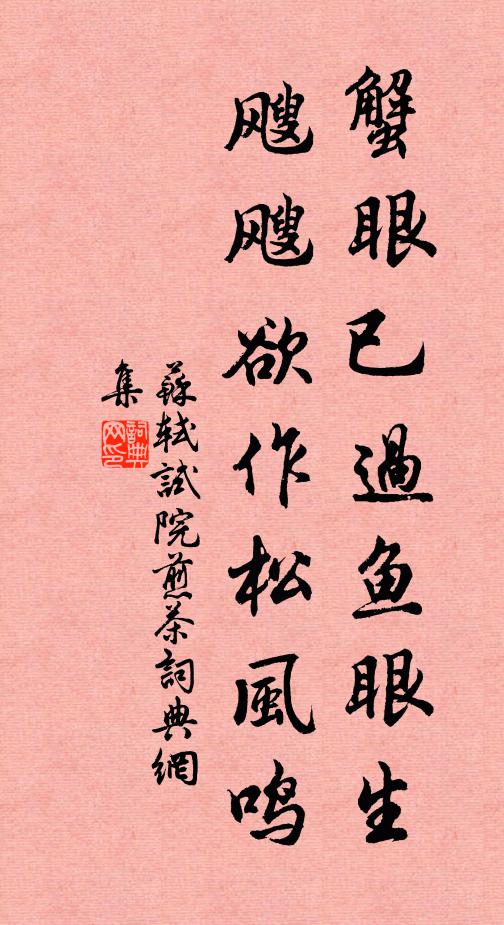 蟹眼已過鱼眼生
飕飕欲作松風鸣
蘇軾試院煎茶詞典網
集
詞典网印